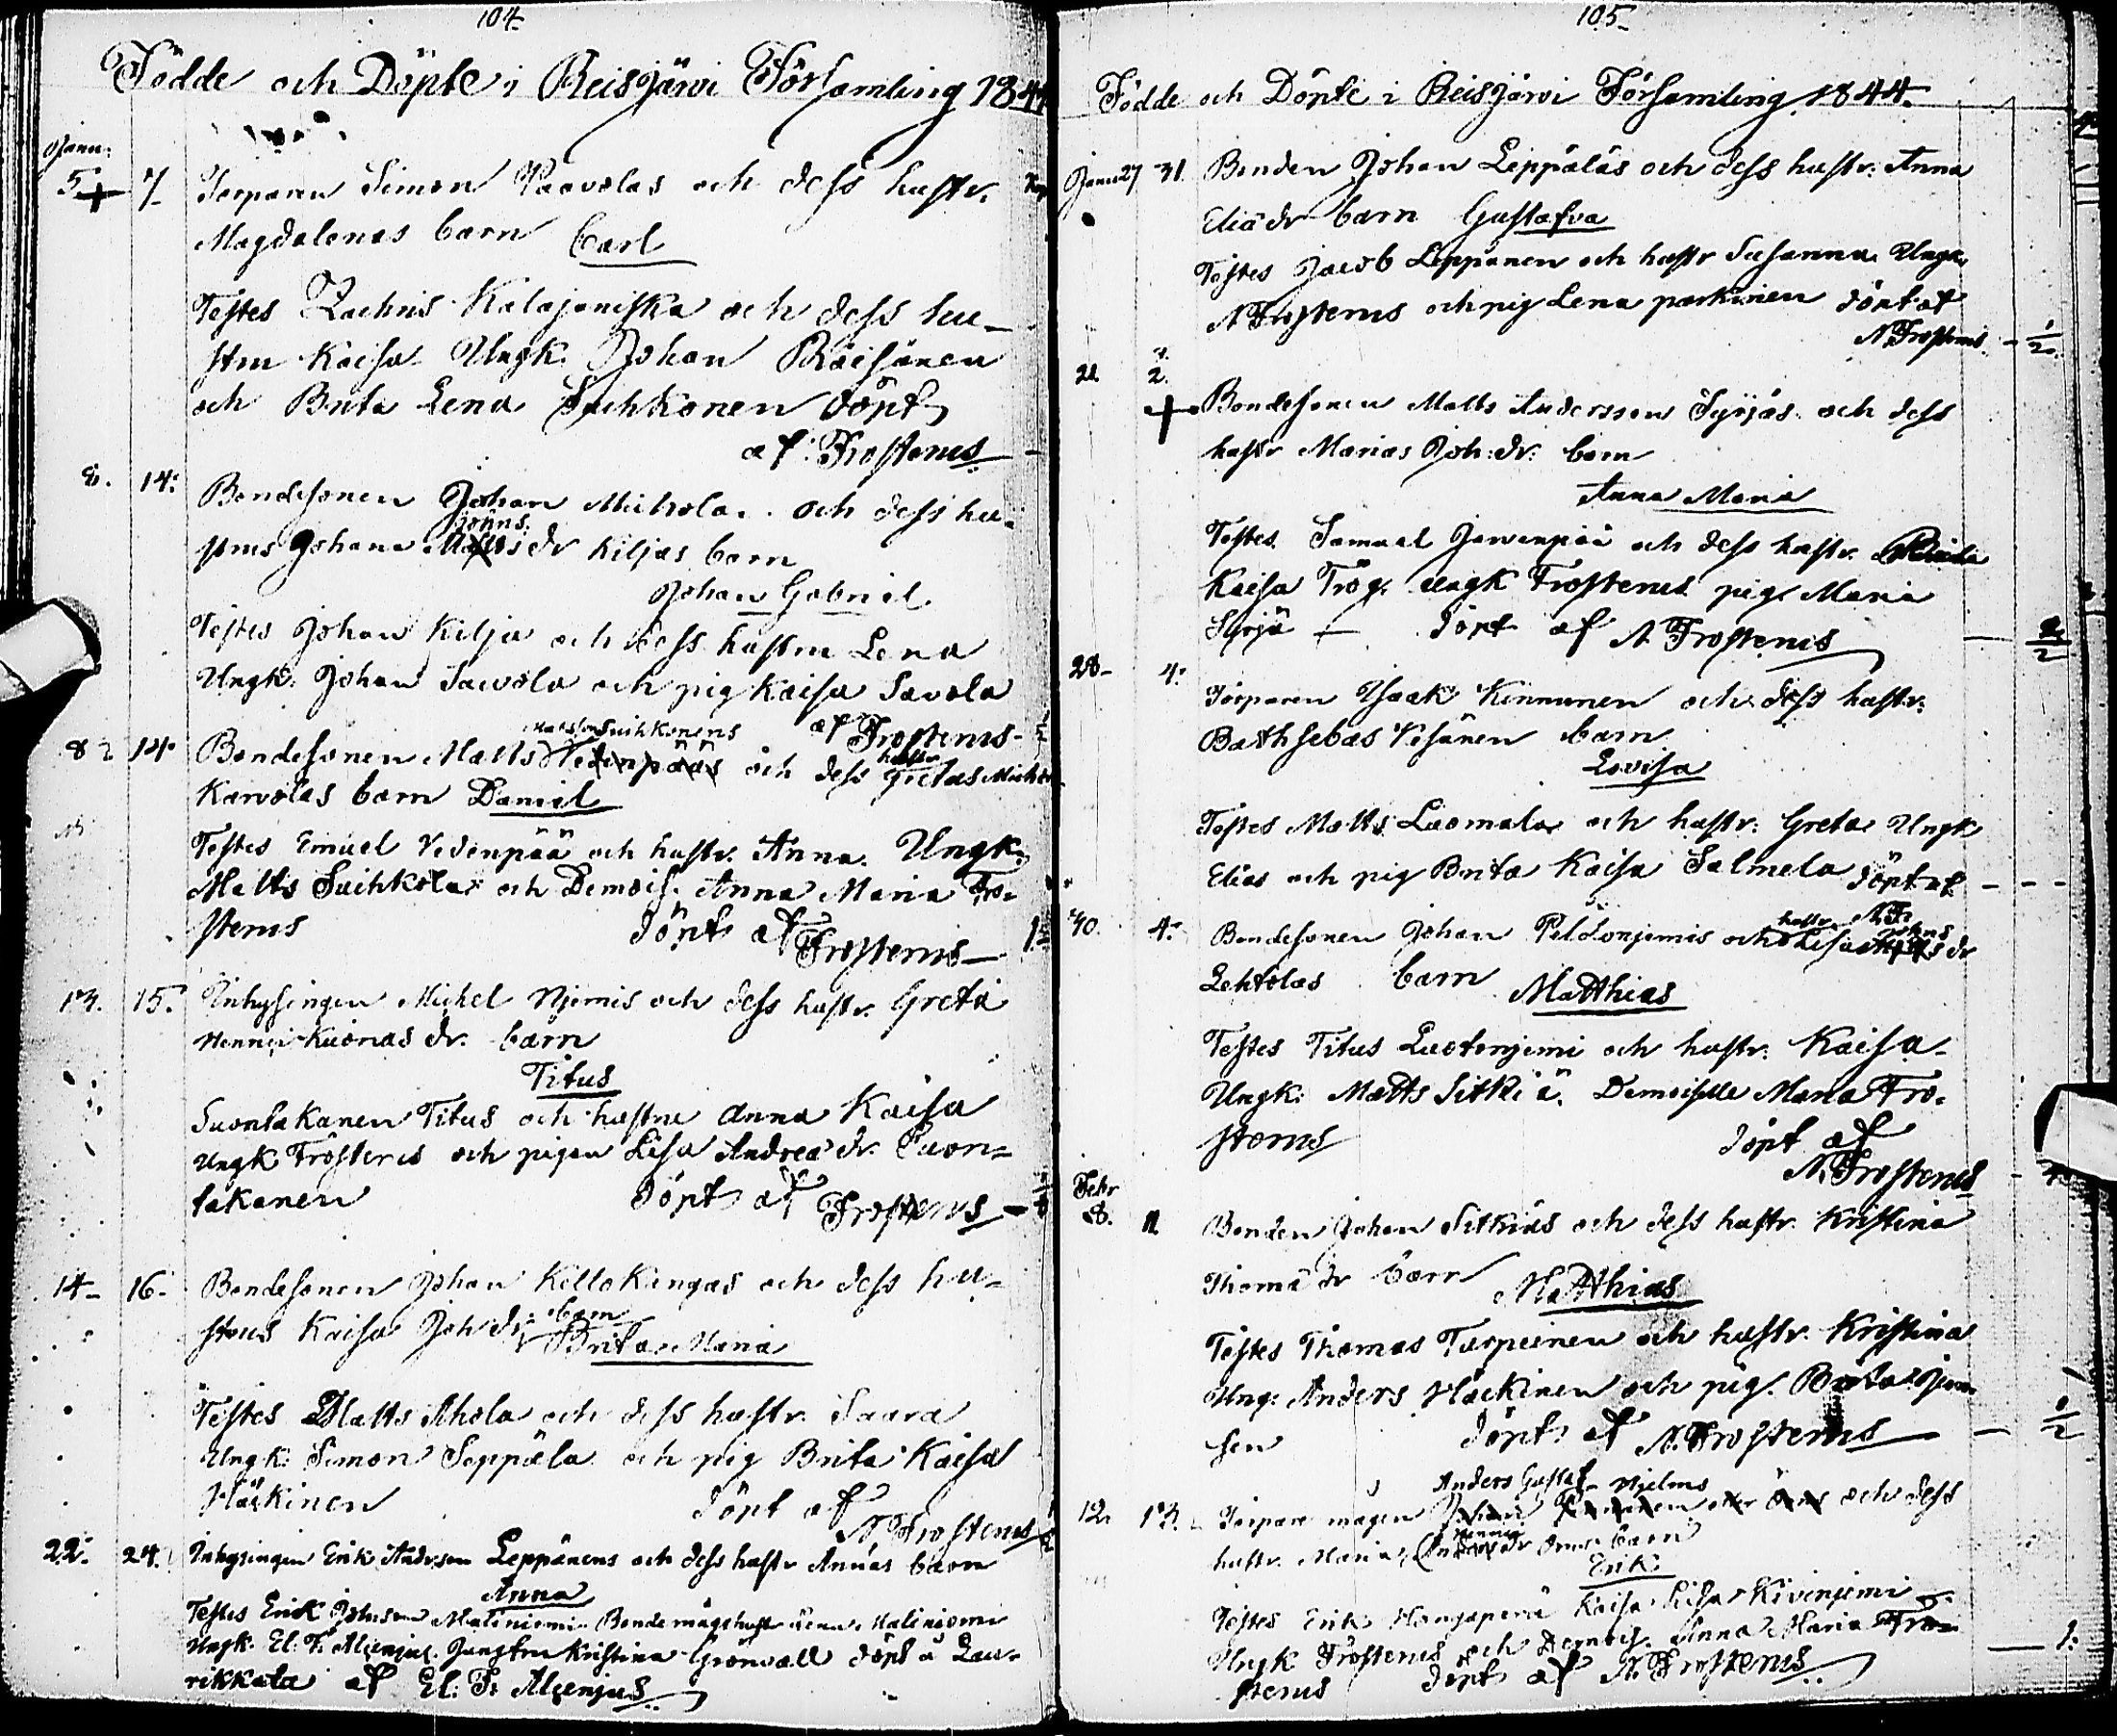 104.
Födde och Döpte i Reisjärvi Församling 1844
Janu:
5 7. Torparen Simon Paavolas och dess hustr.
Magdalenas barn Carl
Testes Zachris Kalajaniska och dess hu-
stru Kaisa Ungk. Johan Räisänen
och Brita Lena Suihkonen döpt
af Frosterus
8. 14. Bondesonen Johan Mickola och dess hu-
Johns.
strus Johana Matts dr Kiljas barn
Johan Gabriel
Testes Johan Kilja och dess hustru Lena
Ungk. Johan Savola och pig Kaisa Savola
af Frosterus
Mattsson Suihkonens
8 14. Bondesonen Matts Vedenpääs och dess hustru Gretas Mich
Karvolas barn Daniel
Testes Emuel Vedenpää och hustr. Anna. Ungk.
Matts Suihkola och Demois. Anna Maria Fro-
sterus döpt af Frosterus
13. 15. Inhysingen Michel Njemis och dess hustr. Greta
Hennei Kuonas dr. barn
Titus
Suontakanen Titus och hustru Anna Kaisa
Ungk Frosterus och pigan Lisa Andrea dr. Suon-
takanen döpt af Frosterus
14 16. Bondesonen Johan Kellokangas och dess hu-
strus Kaisa Joh dr. barn
Brita Maria
Testes Matts Ahola och dess hustr. Saara
Ungk. Simon Seppäla och pig Brita Kaisa
Häckinen döpt af
N. Frosterus
22. 24. Inhysingen Erik Andersson Leppänens och dess hustr Annas barn
Anna
Testes Erik Johnsson Maliniemi Bondemågs hustr Lena Maliniemi
Ungk. El. Fr. Alcenius. Jungfru Kristina Grönvall döpt å Lau-
rikkala af El. Fr. Alcenius
105.
Födde och Döpte i Reisjärvi Församling 1844.
Janu 27 31. Bonden Johan Leppäläs och dess hustr. Anna
Eliä dr barn Gustafva
Testes Jacob Leppänen och hustr Susanna Ungk.
N Frosterus och pig Lena parkinen döpt af
N. Frosterus 1/2
21 2. Bondesonen Matts Andersson Syrjäs och dess
hustr Marias Joh. dr. barn
Anna Maria
Testes Samuel Jarvenpää och dess hustr.
Kaisa Frog. Ungk Frosterus pig Maria
Syrjä döpt af N. Frosterus
28 4. Torparen Isaak Kinnunen och dess hustr.
Bathsebas Vesänen barn
Lovisa
Testes Matts Luomala och hustr. Greta Ungk
Elias och pig Brita Kaisa Salmela döpt af
N. F.
30. 4. Bondesonen Johan Peldonjemis och hustr Lisa Johns dr
Lehtolas barn Matthias
Testes Titus Luotonjemi och hustr. Kaisa
Ungk. Matts Sitkiä. Demoiselle Maria Fro-
sterus döpt af
N. Frosterus
Febr
8. 11 Bonden Johan Sitkiäs och dess hustr. Kristina
Thoma dr barn Matthias
Testes Thomas Turpeinen och hustr. Kristina
Ung. Anders Häckinen och pig. Brita
sen döpt af N. Frosterus 1/2
Anders Gustaf Hjelms
12. 13. Torpare mågen och dess
hustr. Maria barn
Erik
Testes Erik Hangaperä Kaisa Lisa Kivinjemi
Ungk Frosterus och Demois. Anna Maria Fro-
sterus döpt af N. Frosterus 1.